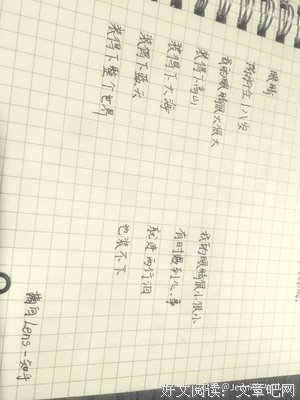 眼睛
陈科全 八岁
我的眼睛很大很大
装得下高山
装得下大海
装得下蓝天
装得下整个世界
我的眼睛很小很小
有时遇到心事
就连两行泪
也装不下
摘自Lens-知乎
好文阅读:文章吧网